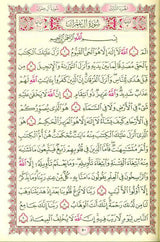 سورة آل عمران
بسم الله الرحمن الرحيم
الم الله لا إله إلا هو الحي القيوم نزل عليك الكتاب
بالحق مصدقا لما بين يديه وأنزل التوراة والإنجيل من قبل
هدى للناس وأنزل الفرقان إن الذين كفروا بآيات الله لهم
عذاب شديد والله عزيز ذو انتقام إن الله لا يخفى عليه
شيء في الأرض ولا في السماء هو الذي يصوركم في
الأرحام كيف يشاء لا إله إلا هو العزيز الحكيم هو الذي
أنزل عليك الكتاب منه آيات محكمات هن أم الكتاب
وأخر متشابهات فأما الذين في قلوبهم زيغ فيتبعون ما تشابه
منه ابتغاء الفتنة وابتغاء تأويله وما يعلم تأويله إلا الله
والراسخون في العلم يقولون آمنا به كل من عند ربنا وما يذكر
إلا أولو الألباب ربنا لا تزغ قلوبنا بعد إذ هديتنا وهب لنا
من لدنك رحمة إنك أنت الوهاب ربنا إنك جامع
الناس ليوم لا ريب فيه إن الله لا يخلف الميعاد
٥٠